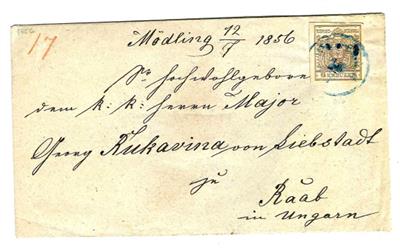 1856
17
Mödling 12/7 1856
Sr Hochwohlgeboren
dem k: k: Herrn Major
Georg Rukavina von Liebstadt
zu
Raab
in Ungarn